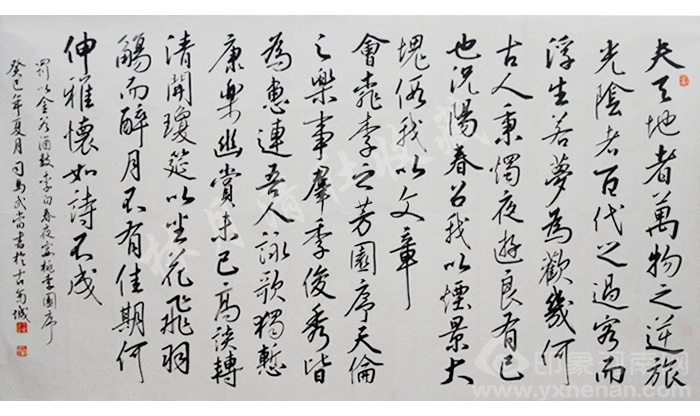 夫天地者萬物之逆旅
光陰者百代之過客而
浮生若夢為歡幾何
古人秉燭夜遊良有已
也況陽春召我以煙景大
塊假我以文章
會桃李之芳園序天倫
之樂事羣季俊秀皆
為惠連吾人詠歌獨慙
康樂幽賞未已高談轉
清開瓊筵以坐花飛羽
觴而醉月不有佳期何
伸雅懷如詩不成
罰以金谷酒數 李白春夜宴桃李園序
癸巳年夏月司馬武當書於古宛城
印象河南网
www.yxhenan.com